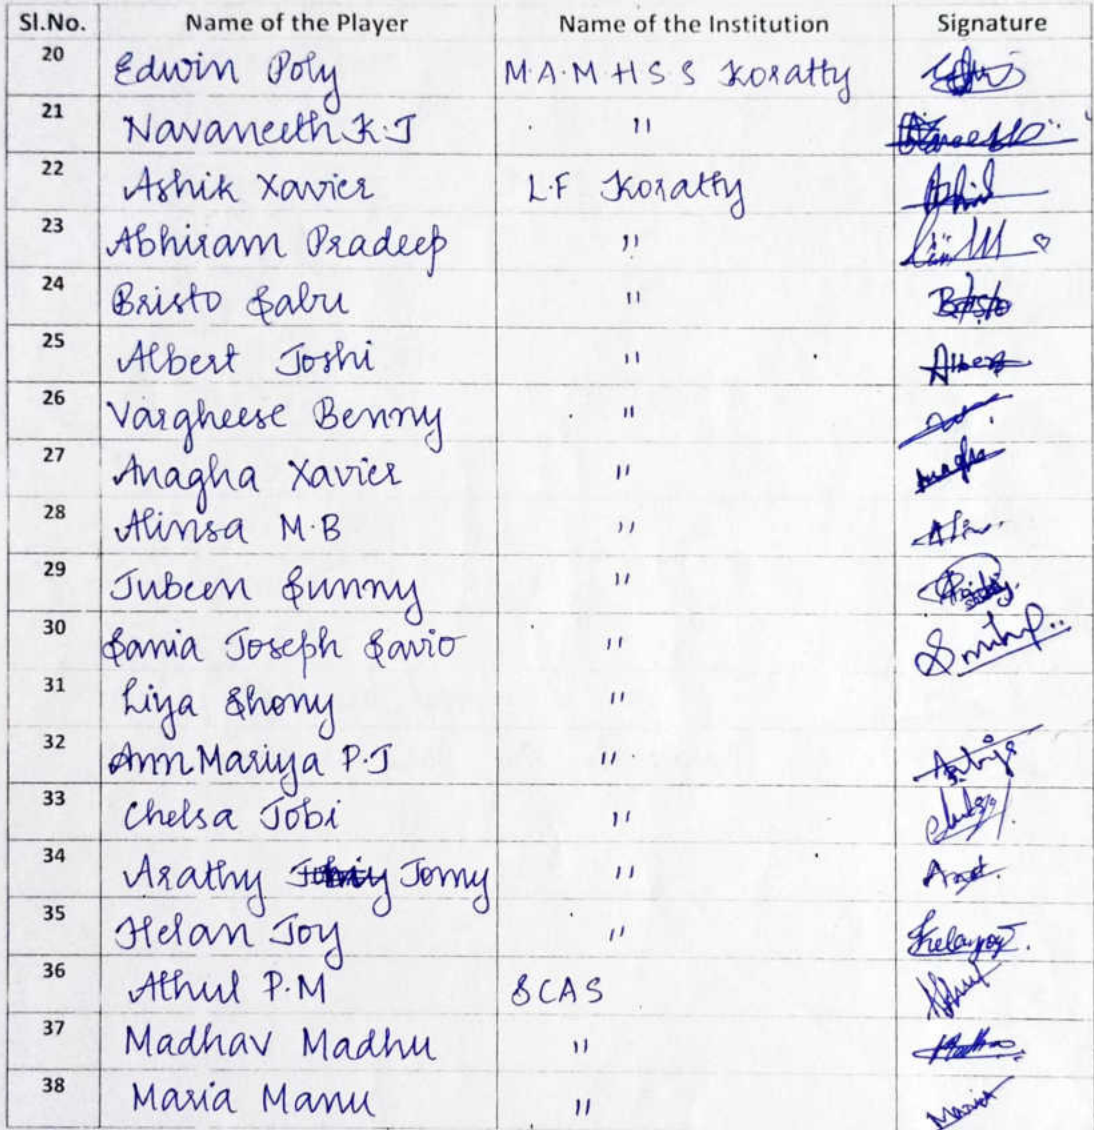 Sl.No. Name of the Player Name of the Institution Signature
20 Edwin Poly M.A.M H S S Koratty
21 Navaneeth K.J "
22 Ashik Xavier L.F Koratty Ashik
23 Abhiram Pradeep "
24 Bristo Babu " Bristo
25 Albert Joshi " Albert
26 Vargheese Benny "
27 Anagha Xavier " Anagha
28 Alinsa M.B "
29 Jubeen Sunny "
30 Sania Joseph Savio "
31 Liya Shony "
32 Ann Mariya P.J "
33 Chelsa Jobi "
34 Arathy Jomy "
35 Helan Joy "
36 Athul P.M SCAS
37 Madhav Madhu "
38 Maria Manu "